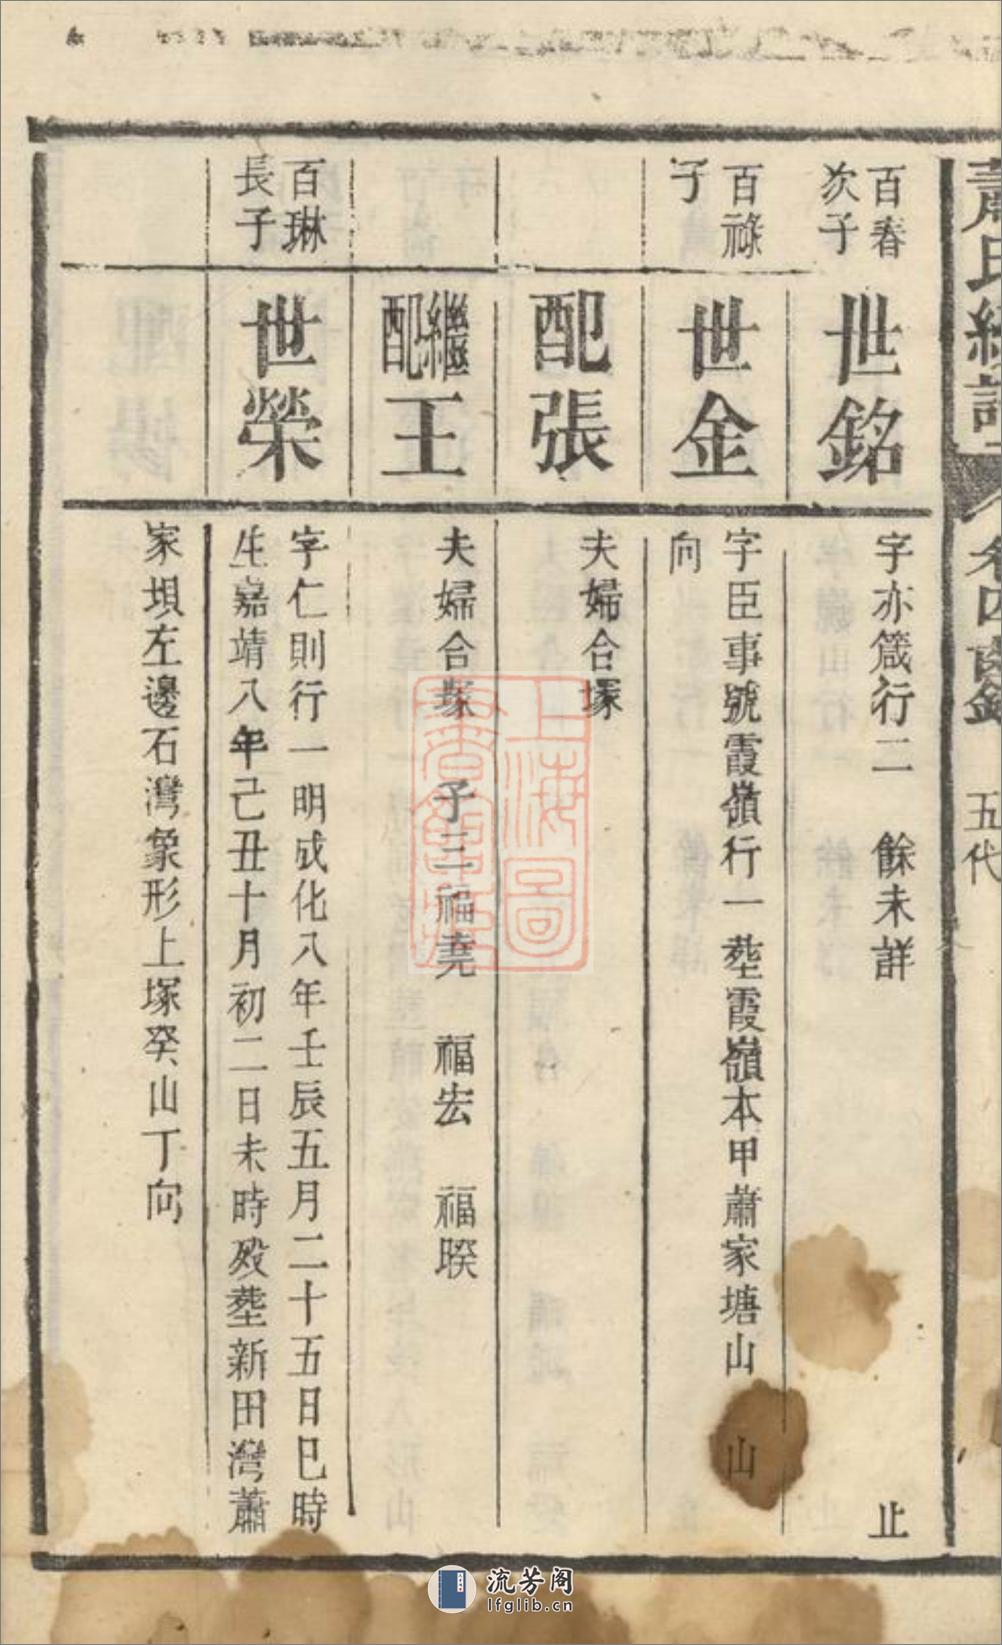 蕭氏續譜
卷四
五代
百春
次子
世銘
字亦箴行二　餘未詳　止
百祿
子
世金
字臣事號霞嶺行一葬霞嶺本甲蕭家塘山　山
向
配張
夫婦合塚
繼配王
夫婦合塚　子三福堯　福宏　福暌
百琳
長子
世榮
字仁則行一明成化八年壬辰五月二十五日巳時
生嘉靖八年己丑十月初二日未時歿葬新田灣蕭
家垻左邊石灣象形上塚癸山丁向
上海圖
書館藏
流芳阁
lfglib.cn